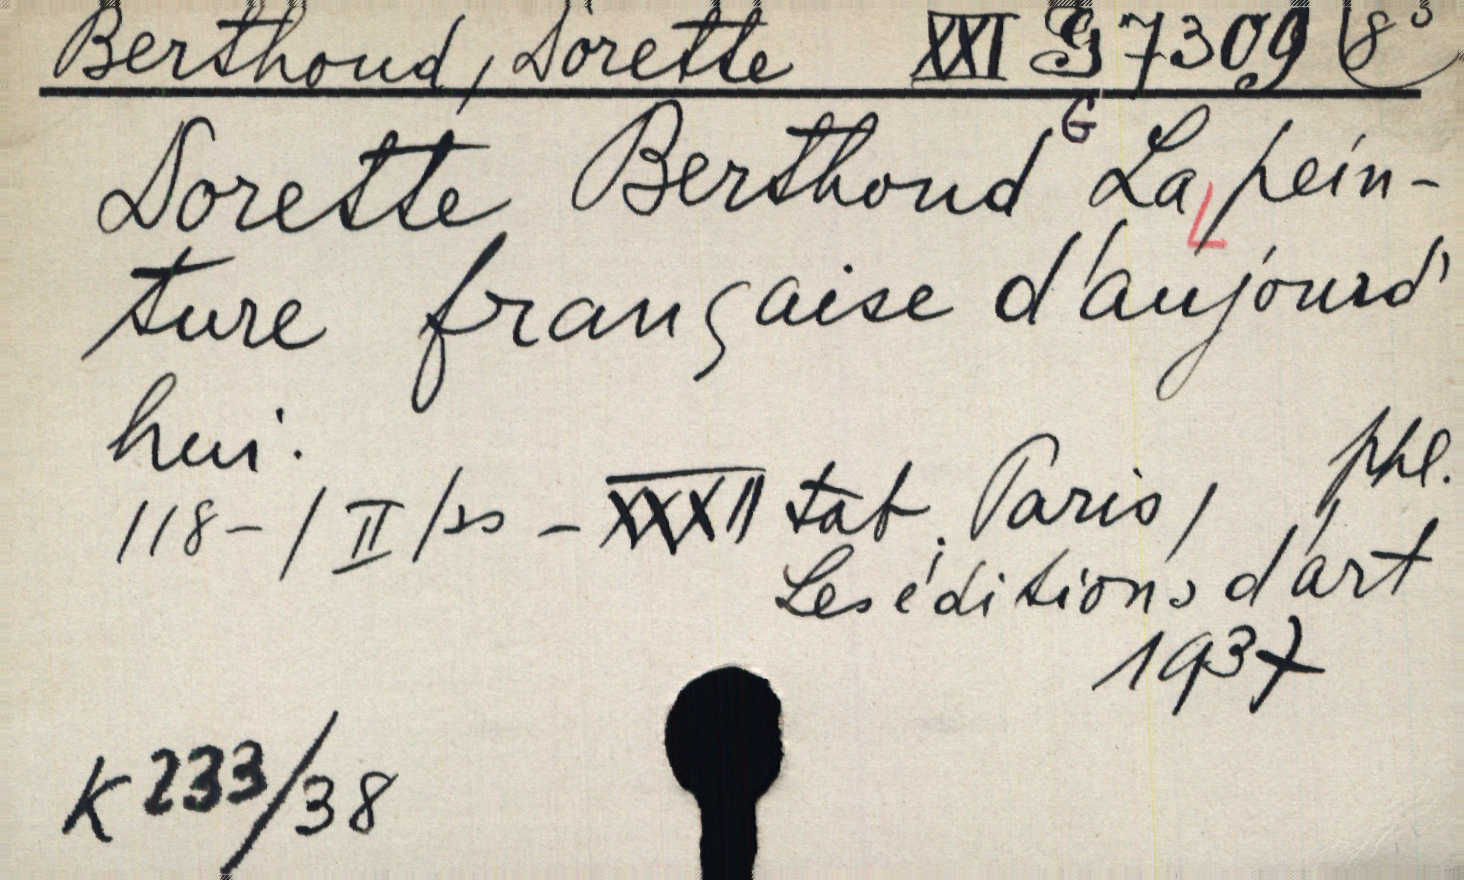 Berthoud, Dorette XXI G 7309 8°
G
Dorette Berthoud La pein-
ture française d'aujourd'
hui.
118-/II/ss - XXXII tab. Paris, phl.
Les éditions d'art
1937
K 233/38